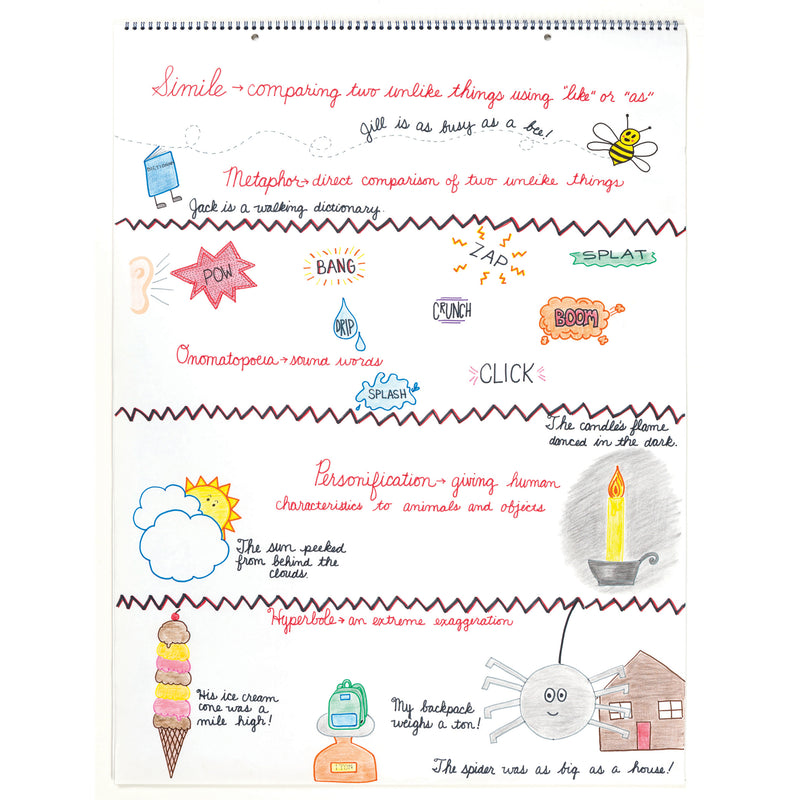 Simile → comparing two unlike things using "like" or "as"
Jill is as busy as a bee!
DICTIONARY
Metaphor → direct comparison of two unlike things
Jack is a walking dictionary.
POW
BANG
ZAP
SPLAT
DRIP
CRUNCH
BOOM
Onomatopoeia → sound words
SPLASH
CLICK
The candle's flame
danced in the dark.
Personification → giving human
characteristics to animals and objects
The sun peeked
from behind the
clouds.
Hyperbole → an extreme exaggeration
His ice cream
cone was a
mile high!
My backpack
weighs a ton!
1 TON
The spider was as big as a house!